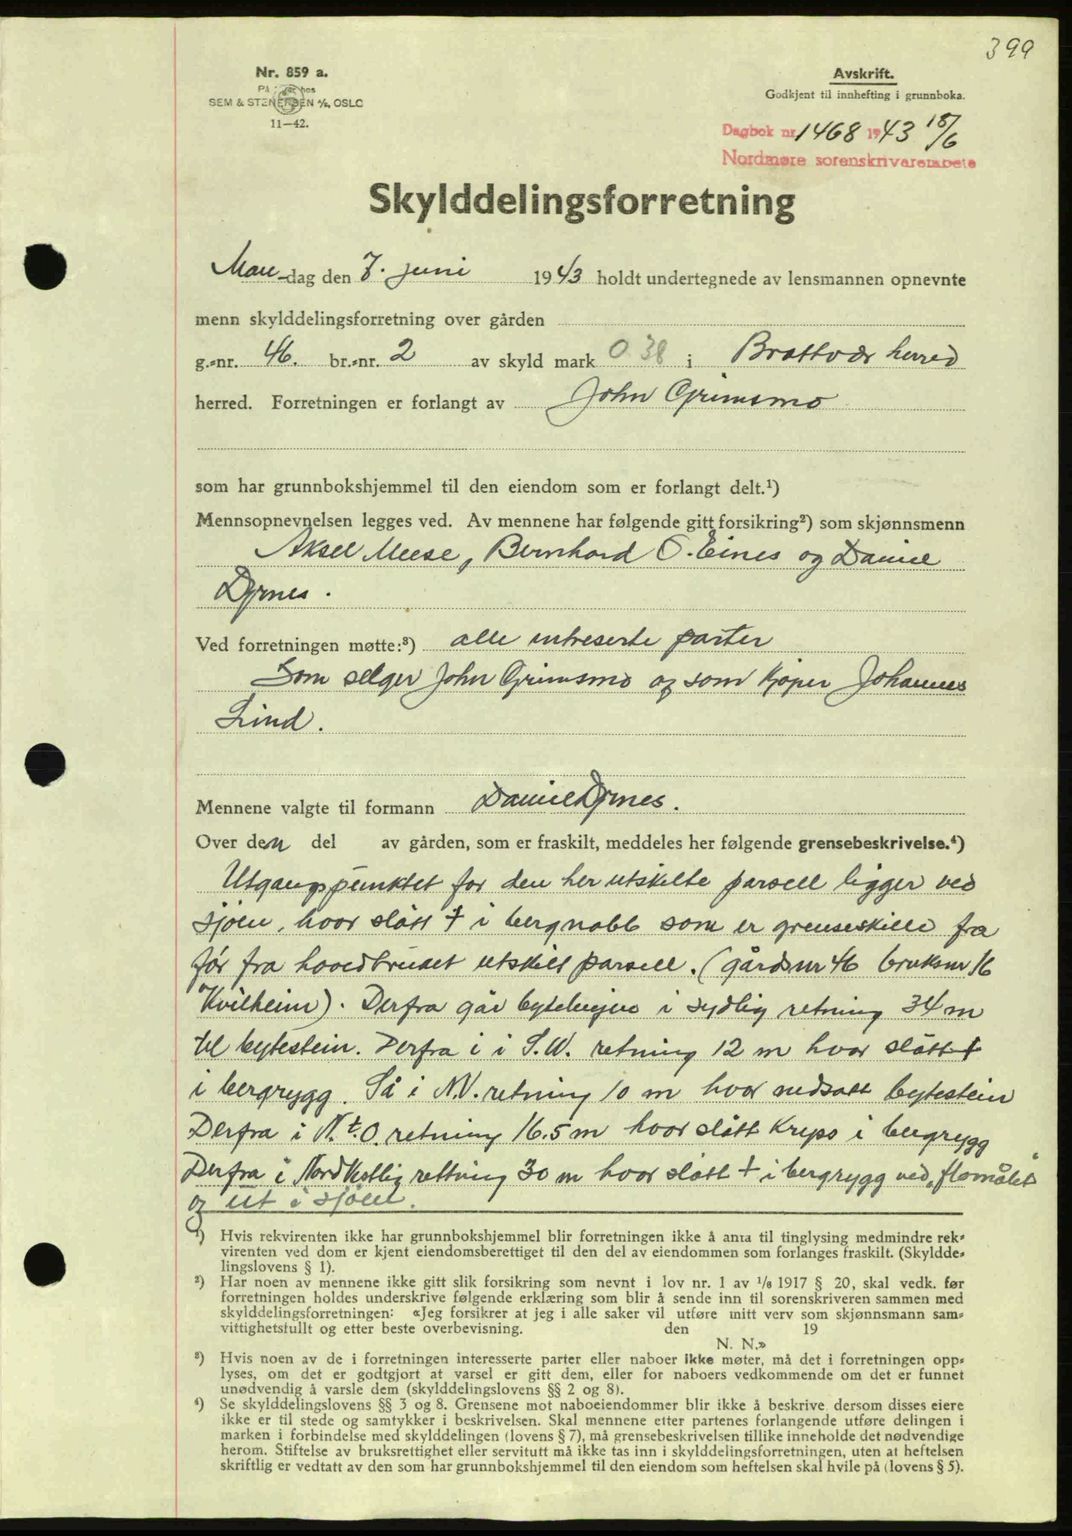 399
Nr. 859 a.
På hos
SEM & STENERSEN A/S, OSLO
11—42.
Avskrift.
Godkjent til innhefting i grunnboka.
Dagbok nr. 1468 1943 18/6
Nordmøre sorenskrivarembete
Skylddelingsforretning
Man-dag den 7. juni 1943 holdt undertegnede av lensmannen opnevnte
menn skylddelingsforretning over gården
g.-nr. 46. br.-nr. 2 av skyld mark 0.38 i Brattvær herred
herred. Forretningen er forlangt av John Grimsmo
som har grunnbokshjemmel til den eiendom som er forlangt delt.¹)
Mennsopnevnelsen legges ved. Av mennene har følgende gitt forsikring²) som skjønnsmenn
Aksel Meese, Bernhard O. Eines og Daniel
Dyrnes.
Ved forretningen møtte:³) alle intreserte parter
Som selger John Grimsmo og som kjøper Johannes
Lind.
Mennene valgte til formann Daniel Dyrnes.
Over den del av gården, som er fraskilt, meddeles her følgende grensebeskrivelse.⁴)
Utgangspunktet for den her utskilte parsell ligger ved
sjøen, hvor slått † i bergnabb som er grenseskille fra
før fra hovedbruket utskilt parsell. (gårdsnr 46 bruksnr 16
Kvilheim). Derfra går bytelinjen i sydlig retning 34 m
til bytestein. Derfra i i S.W. retning 12 m hvor slått †
i bergrygg. Så i N.V. retning 10 m hvor nedsatt bytestein
Derfra i N.t.O. retning 16.5 m hvor slått kryss i bergrygg
Derfra i Nord Vestlig rettning 30 m hvor slått † i bergrygg ved „flomålet"
og ut i sjøen.
¹) Hvis rekvirenten ikke har grunnbokshjemmel blir forretningen ikke å anta til tinglysing medmindre rek-
virenten ved dom er kjent eiendomsberettiget til den del av eiendommen som forlanges fraskilt. (Skyldde-
lingslovens § 1).
²) Har noen av mennene ikke gitt slik forsikring som nevnt i lov nr. 1 av 1/6 1917 § 20, skal vedk. før
forretningen holdes underskrive følgende erklæring som blir å sende inn til sorenskriveren sammen med
skylddelingsforretningen: «Jeg forsikrer at jeg i alle saker vil utføre mitt verv som skjønnsmann sam-
vittighetsfullt og etter beste overbevisning. den 19
N. N.»
³) Hvis noen av de i forretningen interesserte parter eller naboer ikke møter, må det i forretningen opp-
lyses, om det er godtgjort at varsel er gitt dem, eller for naboers vedkommende om det er funnet
unødvendig å varsle dem (skylddelingslovens §§ 2 og 8).
⁴) Se skylddelingslovens §§ 3 og 8. Grensene mot naboeiendommer blir ikke å beskrive, dersom disses eiere
ikke er til stede og samtykker i beskrivelsen. Skal mennene etter partenes forlangende utføre delingen i
marken i forbindelse med skylddelingen (lovens § 7), må grensebeskrivelsen tillike inneholde det nødvendige
herom. Stiftelse av bruksrettighet eller servitutt må ikke tas inn i skylddelingsforretningen, uten at heftelsen
skriftlig er vedtatt av den som har grunnbokshjemmel til den eiendom som heftelsen skal hvile på (lovens § 5).